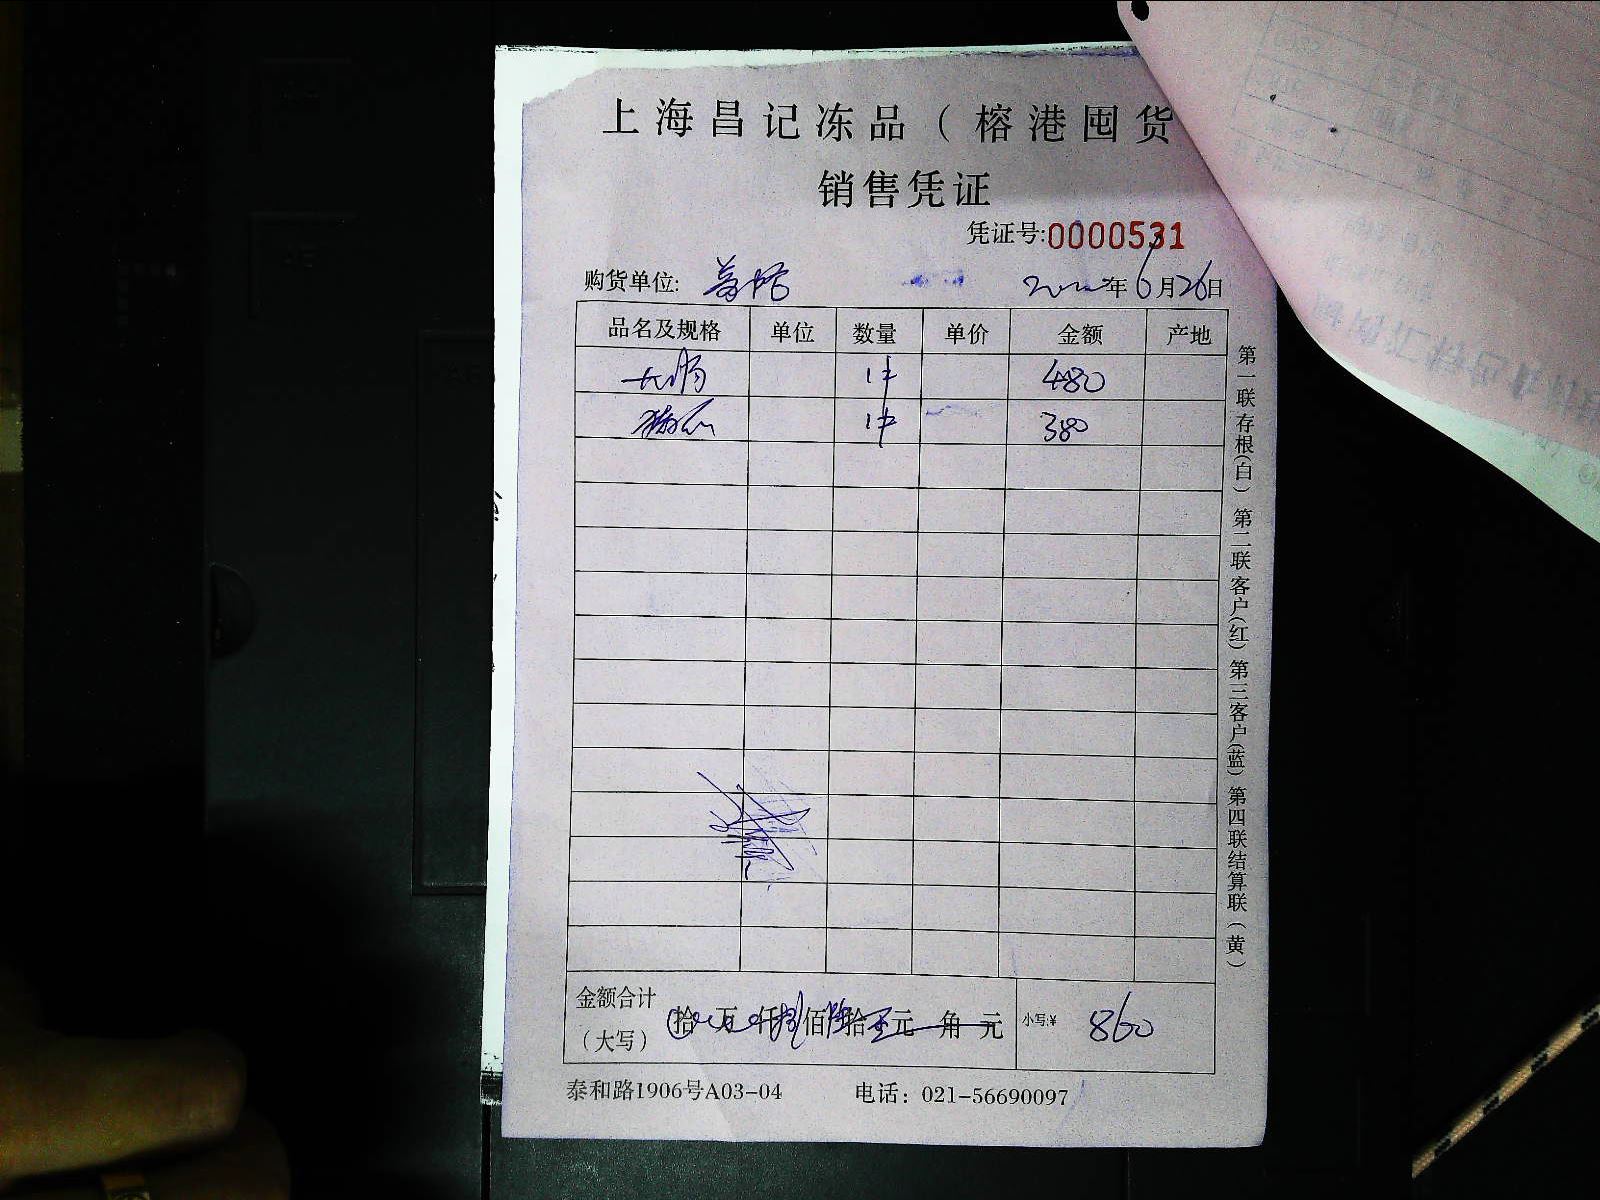 上海昌记冻品（榕港囤货
销售凭证
凭证号:0000531
购货单位: 年6月26日
品名及规格 单位 数量 单价 金额 产地
大肠 1件 480
1件 380
金额合计
（大写） 拾 万 仟 捌佰 陆拾 元 角 元 小写:¥ 860
泰和路1906号A03-04 电话：021-56690097
第一联存根(白) 第二联客户(红) 第三客户(蓝) 第四联结算联(黄)